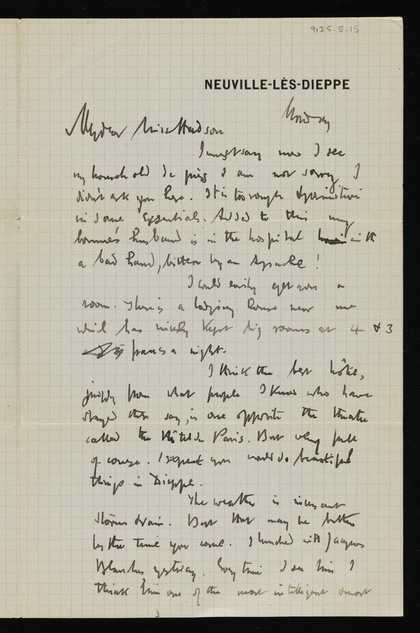 9125.5.15
NEUVILLE-LÈS-DIEPPE
Monday
My dear Miss Hudson
I must say now I see
my household I am not sorry I
didn't ask you here. It is too rough & primitive
in some essentials. Added to this my
bonne's husband is in the hospital with
a bad hand, bitten by an
I could easily get you a
room. There is a lodging house near me
which has nicely kept big rooms at 4 & 3
francs a night.
I think the best hôtel,
judging from what people I know who have
stayed there say, is one opposite the theatre
called the Hôtel de Paris. But very full
of course. I expect you would do beautiful
things in Dieppe.
The weather is incessant
storm & rain. But that may be better
by the time you come. I lunched with Jacques
Blanche yesterday. Every time I see him I
think him one of the most intelligent & most